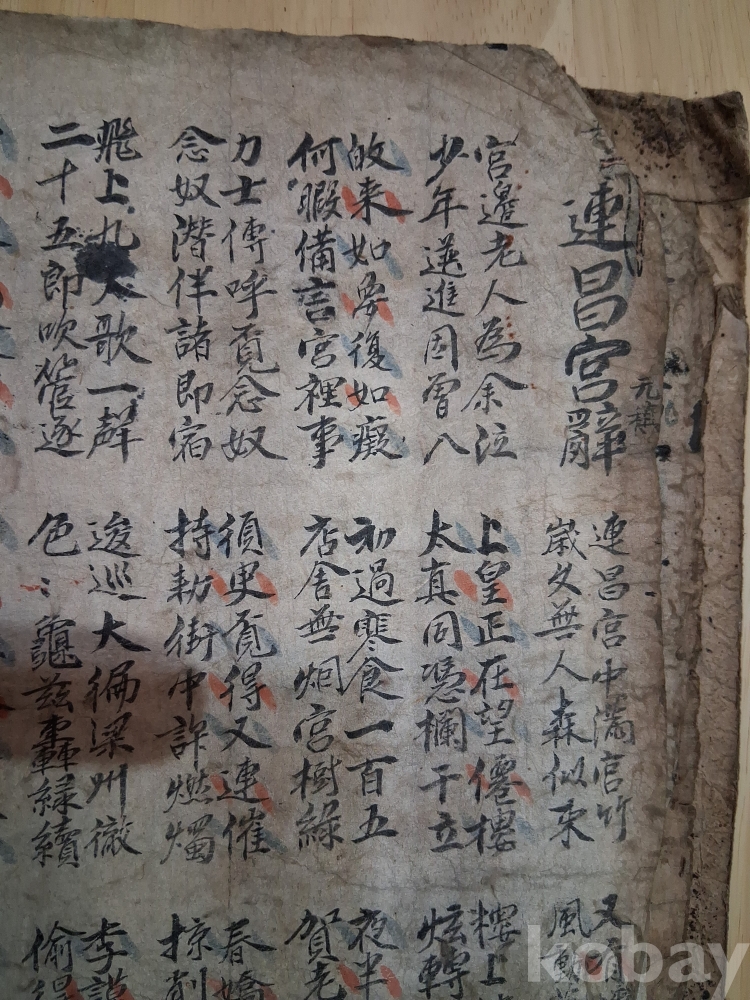 連昌宮辭
元稹
連昌宮中滿官竹
歲久無人森似束
又有
風動
宮邊老人為余泣
少年選進因曾入
上皇正在望僊樓
太真同憑欄干立
樓上
炫轉
敀来如夢復如癡
何暇備言宮裡事
初過寒食一百五
店舍無烟宮樹綠
夜半
賀老
力士傳呼覓念奴
念奴潛伴諸郎宿
須臾覓得又連催
持勅街中許燃燭
春嬌
掠削
飛上九天歌一聲
二十五郎吹管逐
逡巡大徧梁州徹
色〻龜兹轟綠續
李謨
偷得
kobay